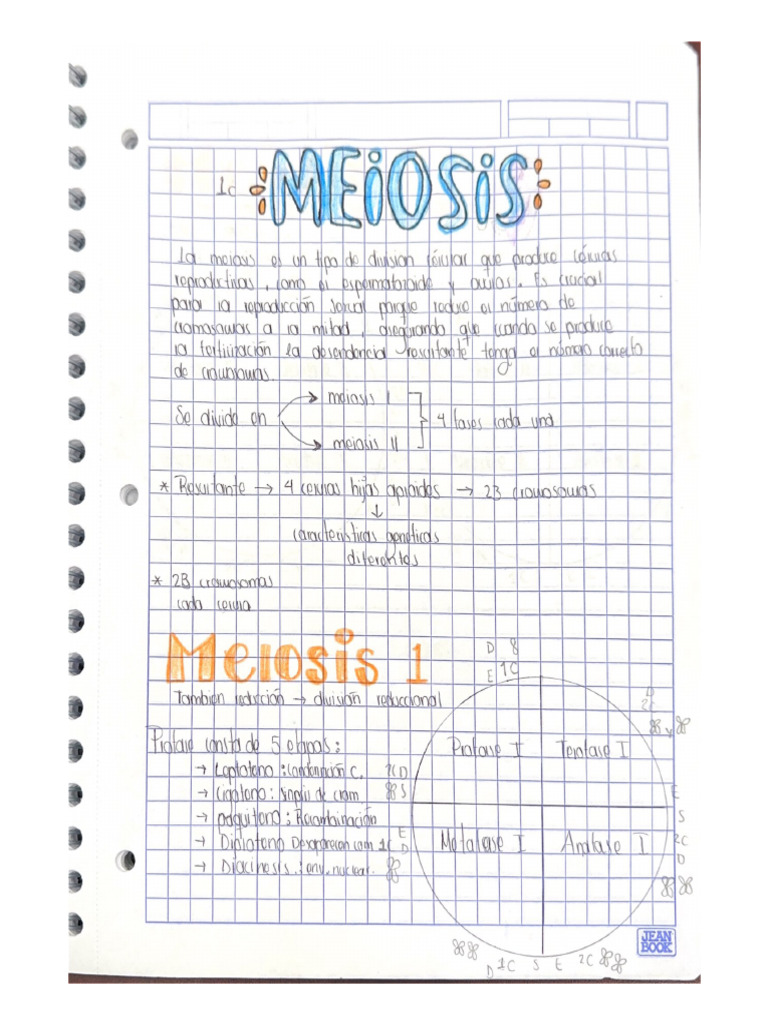 1c MEIOSIS
La meiosis es un tipo de division celular que produce células
reproductivas, como el espermatozoide y ovulos. Es crucial
para la reproducción sexual porque reduce el número de
cromosomas a la mitad, asegurando que cuando se produce
la fertilización la descendencia resultante tenga el número correcto
de cromosomas.
Se divide en → meiosis I
→ meiosis II
4 fases cada una
* Resultante → 4 celulas hijas aploides → 23 cromosomas
↓
características genéticas
diferentes
* 23 cromosomas
cada celula
Meiosis 1
Tambien reducción → división reduccional
Profase consta de 5 etapas:
→ Leptoteno: Condensación C.
→ Cigoteno: Sinapsis de crom
→ paquiteno: Recombinación
→ Diploteno Desaparecen com
→ Diacinesis: env. nuclear.
2C D
S
E 1C
D
D 8
E 1C
D
2C
Profase I
Telofase I
Metafase I
Anafase I
E
S
2C
D
D 1C S E 2C
JEAN
BOOK